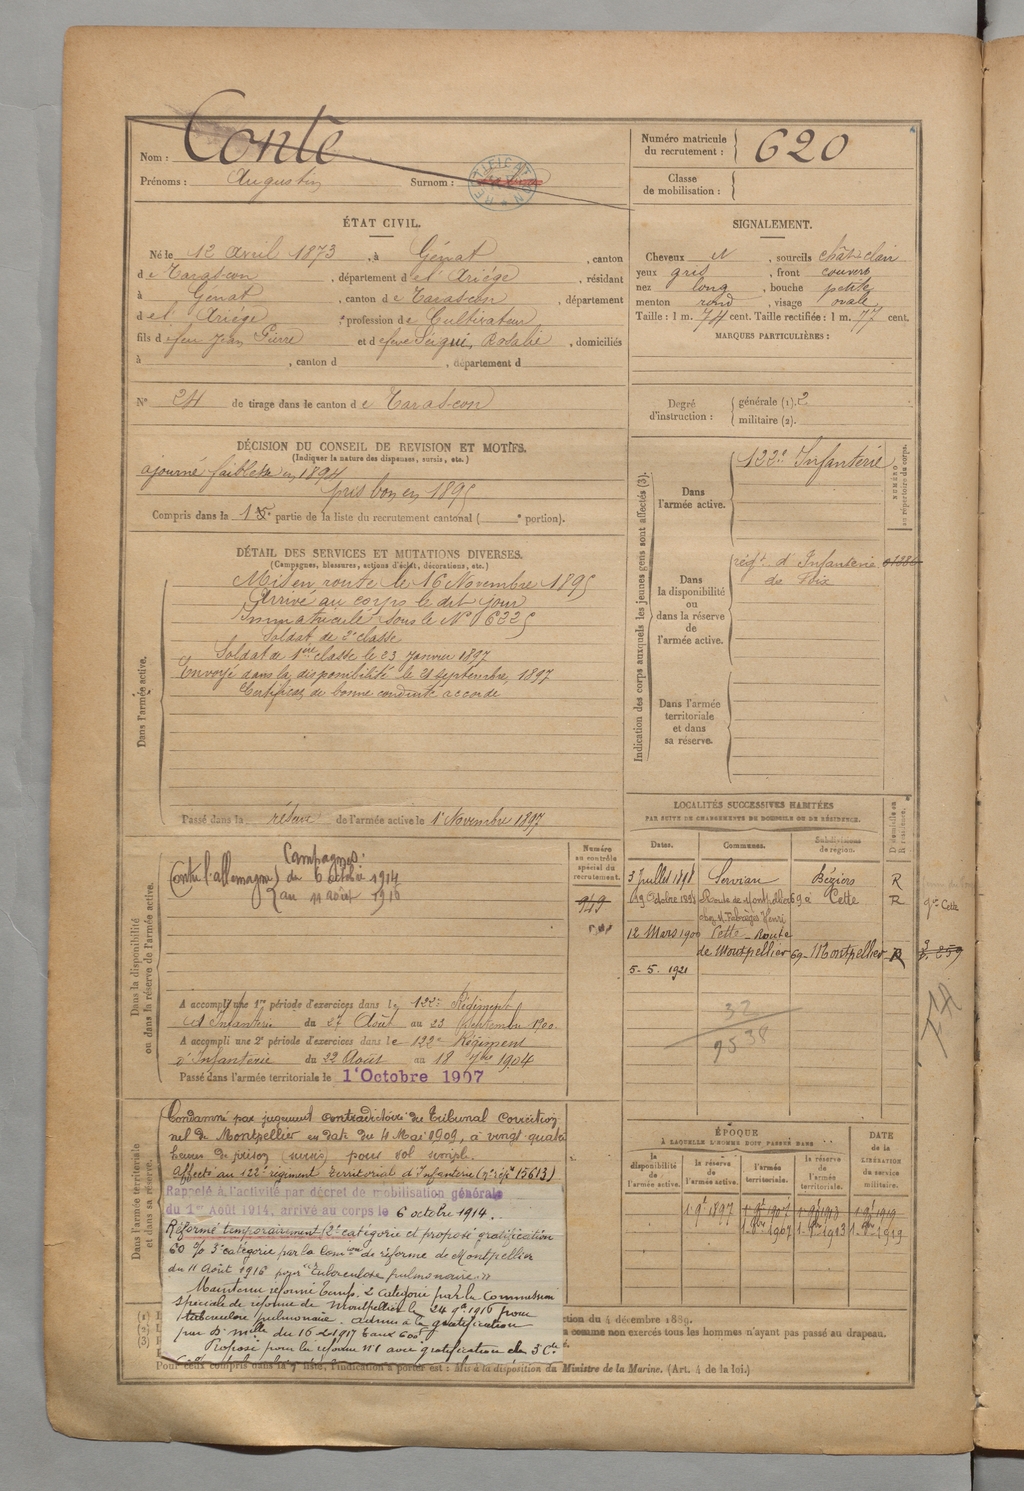 Nom : Conte
Prénoms : Augustin Surnom :
RECTIFICATION
Numéro matricule du recrutement : 620
Classe de mobilisation :
ÉTAT CIVIL.
Né le 12 Avril 1873, à Génat, canton
de Tarascon, département de l'Ariège, résidant
à Génat, canton de Tarascon, département
de l'Ariège, profession de Cultivateur
fils de feu Jean Pierre et de feue Séqui, Rosalie, domiciliés
à , canton d , département d
N° 24 de tirage dans le canton de Tarascon
SIGNALEMENT.
Cheveux N, sourcils chât clair
yeux gris, front couvert
nez long, bouche petite
menton rond, visage ovale
Taille : 1 m. 74 cent. Taille rectifiée : 1 m. 77 cent.
MARQUES PARTICULIÈRES :
Degré d'instruction : générale (1). 2
militaire (2).
DÉCISION DU CONSEIL DE REVISION ET MOTIFS.
(Indiquer la nature des dispenses, sursis, etc.)
ajourné faiblesse en 1894
pris bon en 1895
Compris dans la 1 partie de la liste du recrutement cantonal ( portion).
DÉTAIL DES SERVICES ET MUTATIONS DIVERSES.
(Campagnes, blessures, actions d'éclat, décorations, etc.)
Dans l'armée active.
Mis en route le 16 Novembre 1895
Arrivé au corps le dit jour
Immatriculé sous le N° 6325
Soldat de 2e classe
Soldat de 1ère classe le 23 Janvier 1897
Envoyé dans la disponibilité le 21 septembre 1897
Certificat de bonne conduite accordé
Passé dans la réserve de l'armée active le 1er Novembre 1897
Indication des corps auxquels les jeunes gens sont affectés (3).
NUMÉRO au répertoire du corps.
Dans l'armée active.
122e Infanterie
Dans la disponibilité ou dans la réserve de l'armée active.
régt d'Infanterie
de Foix
Dans l'armée territoriale et dans sa réserve.
Dans la disponibilité ou dans la réserve de l'armée active.
Campagnes :
Contre l'allemagne du 6 octobre 1914
au 11 août 1916
Numéro au contrôle spécial du recrutement.
949
A accompli une 1re période d'exercices dans le 122e Régiment
d'Infanterie du 27 Août au 23 Septembre 1900
A accompli une 2e période d'exercices dans le 122e Régiment
d'Infanterie du 22 Août au 18 7bre 1904
Passé dans l'armée territoriale le 1er Octobre 1907
LOCALITÉS SUCCESSIVES HABITÉES
PAR SUITE DE CHANGEMENTS DE DOMICILE OU DE RÉSIDENCE.
Dates. Communes. Subdivisions de région. D domicile ou R résidence.
3 Juillet 1898 Servian Béziers R
19 Octobre 1898 Route de Montpellier 69 à Cette R
chez M. Fabrèges Henri
12 Mars 1900 Cette - Route
de Montpellier 69 - Montpellier R
5-5.1921
Cette
859
32
9538
Dans l'armée territoriale et dans sa réserve.
Condamné par jugement contradictoire du Tribunal Correction
nel de Montpellier en date du 4 Mai 1909, à vingt quatre
heures de prison (sursis) pour vol simple.
Affecté au 122e régiment territorial d'Infanterie (n° rép. 15613)
Rappelé à l'activité par décret de mobilisation générale
du 1er Août 1914, arrivé au corps le 6 octobre 1914.
Réformé temporairement 2e catégorie et proposé gratification
60 % 3e catégorie par la Comon de réforme de Montpellier
du 11 Août 1916 pour "Tuberculose pulmonaire"
Maintenu réformé temp. 2 catégorie par la Commission
spéciale de réforme de Montpellier le 24 9bre 1916 pour
tuberculose pulmonaire. Admis à la gratification
Proposé pour la réforme n° 1 avec gratification de 5 Cie
ÉPOQUE
À LAQUELLE L'HOMME DOIT PASSER DANS :
la disponibilité de l'armée active. la réserve de l'armée active. l'armée territoriale. la réserve de l'armée territoriale. DATE de la LIBÉRATION du service militaire.
1 9bre 1897 1 9bre 1907 1 9bre 1913 1 9bre 1919
1.8bre 1907 1.8bre 1913 1.8bre 1919
(1)
(2)
(3)
ction du 4 décembre 1889.
comme non exercés tous les hommes n'ayant pas passé au drapeau.
Pour ceux compris dans la liste, l'indication à porter est : Mis à la disposition du Ministre de la Marine. (Art. 4 de la loi.)